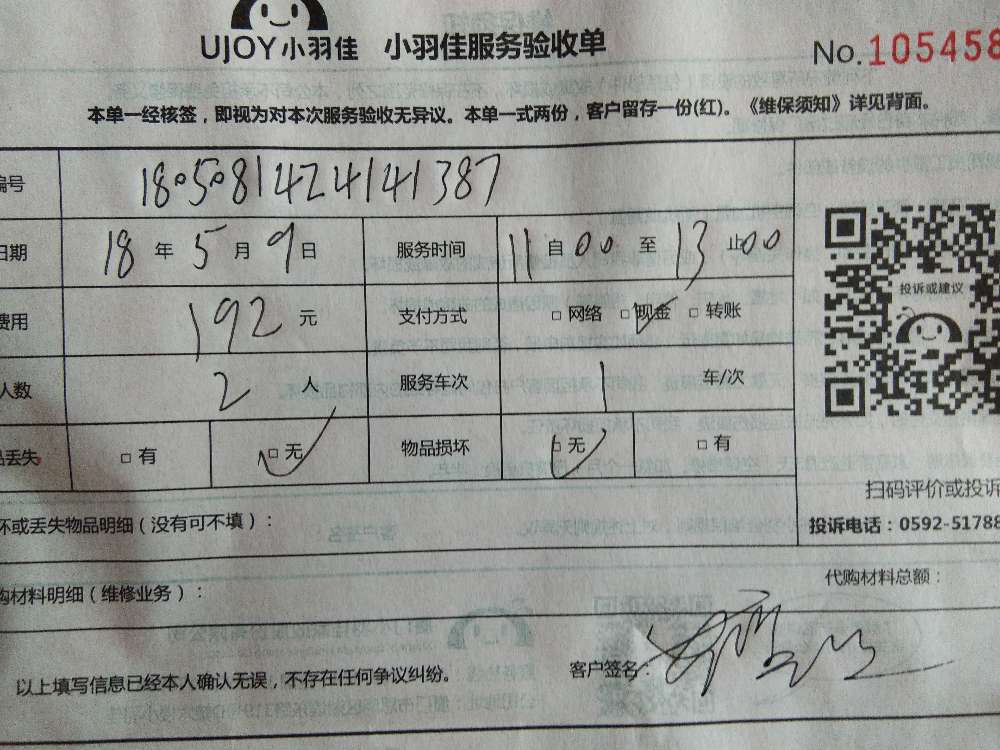 UJOY小羽佳 小羽佳服务验收单 No.105458
本单一经核签，即视为对本次服务验收无异议。本单一式两份，客户留存一份(红)。《维保须知》详见背面。
编号 1805081424141387
日期 18 年 5 月 9 日 服务时间 11 自 00 至 13 止 00
费用 192 元 支付方式 □ 网络 □ 现金 □ 转账
人数 2 人 服务车次 1 车/次
品丢失 □ 有 □ 无 物品损坏 □ 无 □ 有
投诉或建议
扫码评价或投诉
坏或丢失物品明细（没有可不填）：
投诉电话：0592-51788
购材料明细（维修业务）：
代购材料总额：
以上填写信息已经本人确认无误，不存在任何争议纠纷。
客户签名：